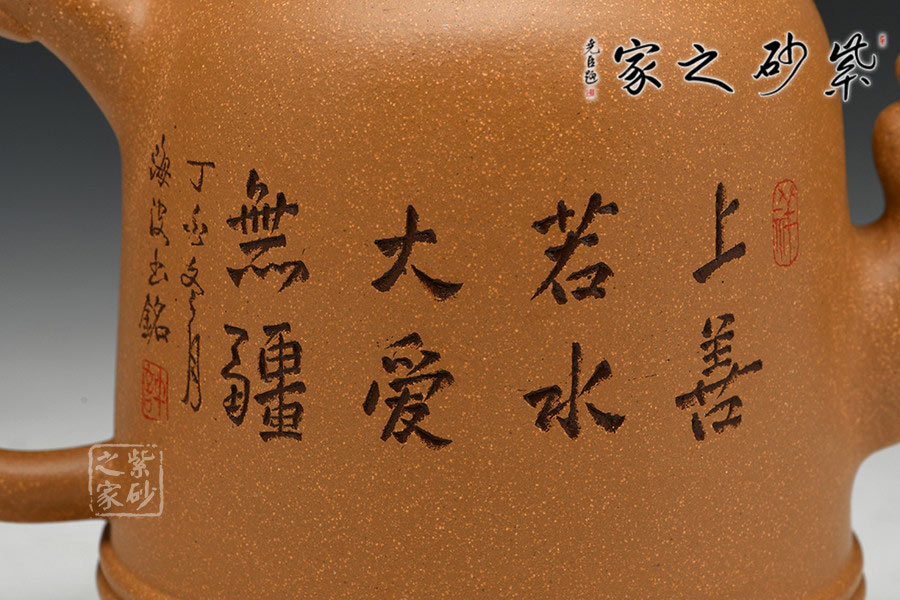 紫砂之家
上善
若水
大愛
無疆
丁酉冬月
海波书銘
紫砂之家